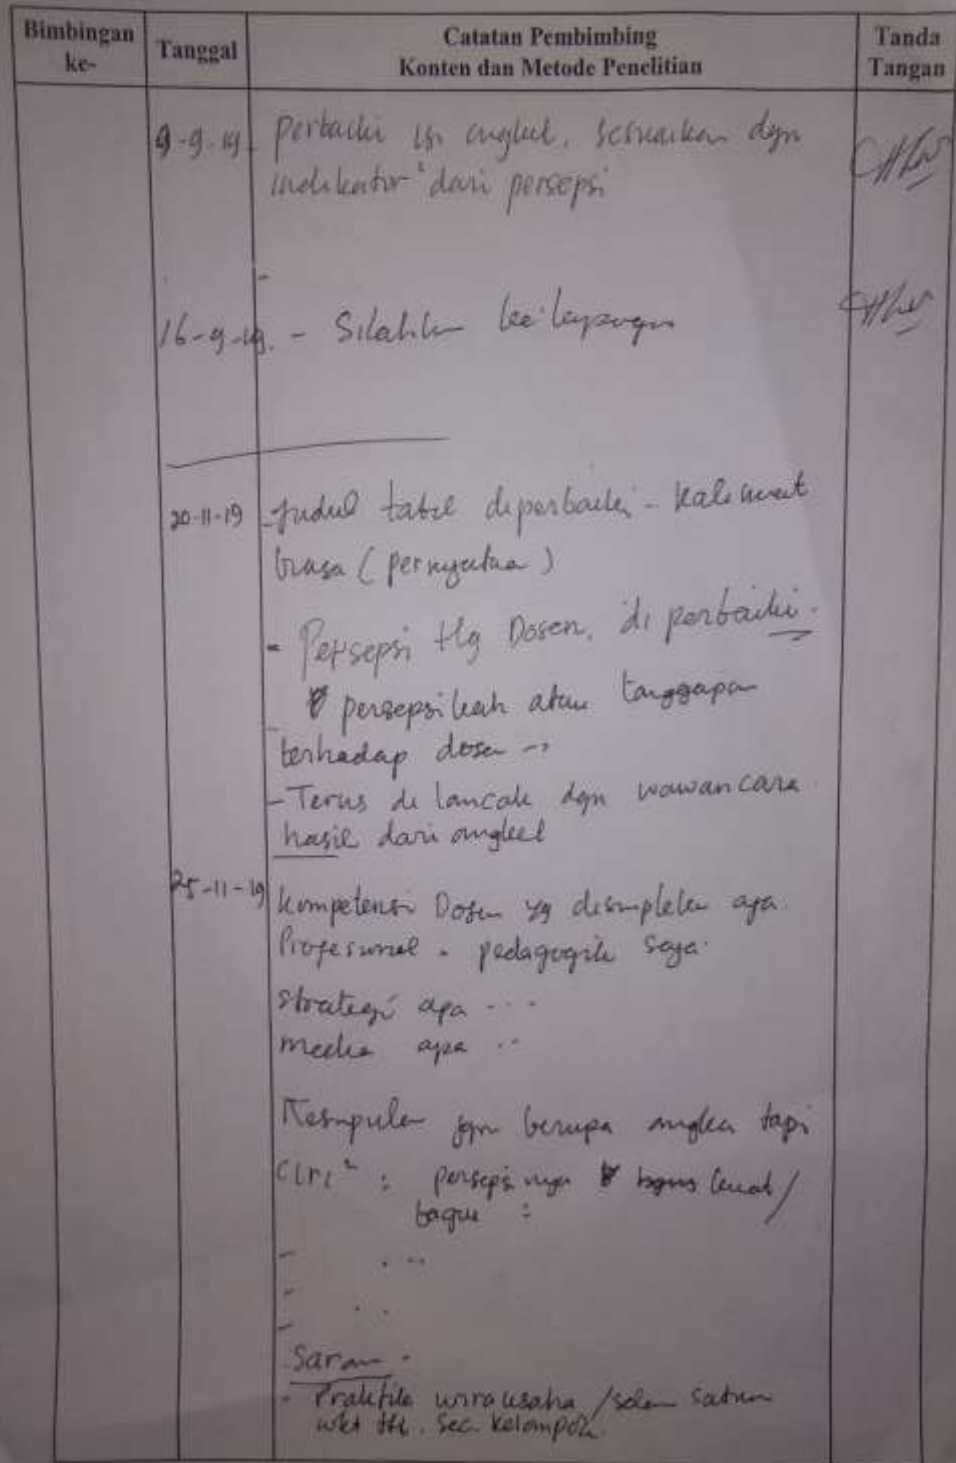 Bimbingan ke-
Tanggal
Catatan Pembimbing
Konten dan Metode Penelitian
Tanda Tangan
9-9-19 - perbaiki isi angket, sesuaikan dgn
indikator² dari persepsi
16-9-19. - Silahkan ke lapangan
20-11-19 - Judul tabel diperbaiki - kalimat
biasa (pernyataan)
- Persepsi ttg Dosen, di perbaiki.
persepsikah atau tanggapan
terhadap dosen
- Terus di lancak dgn wawancara
hasil dari angket
25-11-19 Kompetensi Dosen yg disimpulkan apa
Profesional - pedagogik saja
strategi apa ...
media apa ..
Kesimpulan jgn berupa angka tapi
ciri² : persepsinya bagus /
bagus :
Saran -
- Praktik wirausaha / satuan
wkt ttt. sec. kelompok.